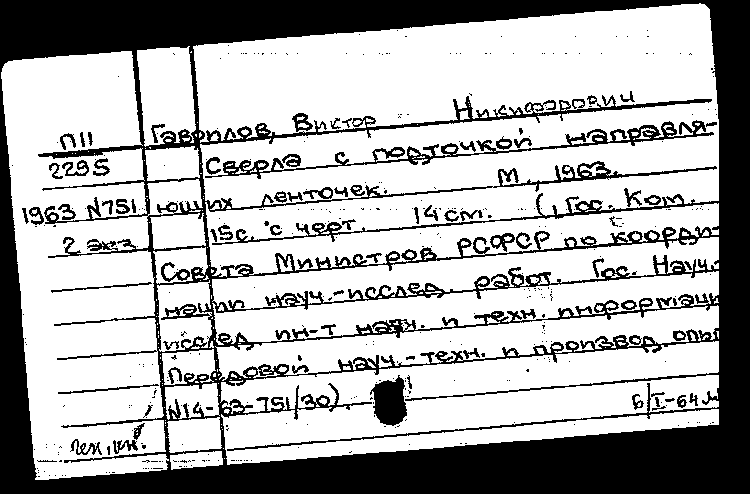 Гаврилов, Виктор Никифорович
П11 Сверла с подточкой направля-
2295
1963 N751 ющих ленточек. М., 1963.
2 экз 15с. с черт. 14 см. (, Гос. Ком.
Совета Министров РСФСР по коорди-
нации науч.-исслед. работ. Гос. Науч.-
исслед. ин-т науч. и техн. информаци
Передовой науч.-техн. и производ. опы
N14-63-751/30).
Б/I-64 м
Ген. кн.